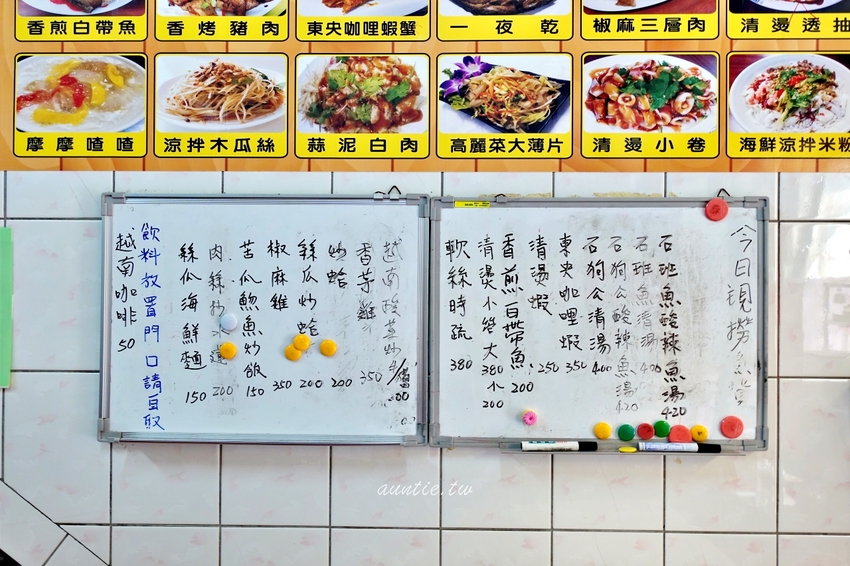 香煎白帶魚
香烤豬肉
東央咖哩蝦蟹
一夜乾
椒麻三層肉
清燙透抽
摩摩喳喳
涼拌木瓜絲
蒜泥白肉
高麗菜大薄片
清燙小卷
海鮮涼拌米粉
今日現撈魚貨
石班魚酸辣魚湯 420
石班魚清湯 400
石狗公酸辣魚湯 420
石狗公清湯 400
東央咖哩蝦 350
清燙蝦 250
香煎白帶魚 200
清燙小卷大 380 小 200
軟絲時疏 380
香茅雞 350
炒蛤 200
絲瓜炒蛤 200
椒麻雞 350
苦瓜魩魚炒飯 150
肉絲炒水蓮 200
絲瓜海鮮麵 150
飲料放置門口請自取
越南咖啡 50
auntie.tw